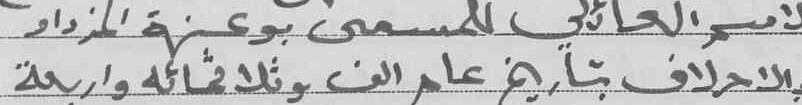 لاسم العائلي للمسمى بوعنزة المزداد
بالاحلاف بتاريخ عام الف وثلاثمائه واربعة